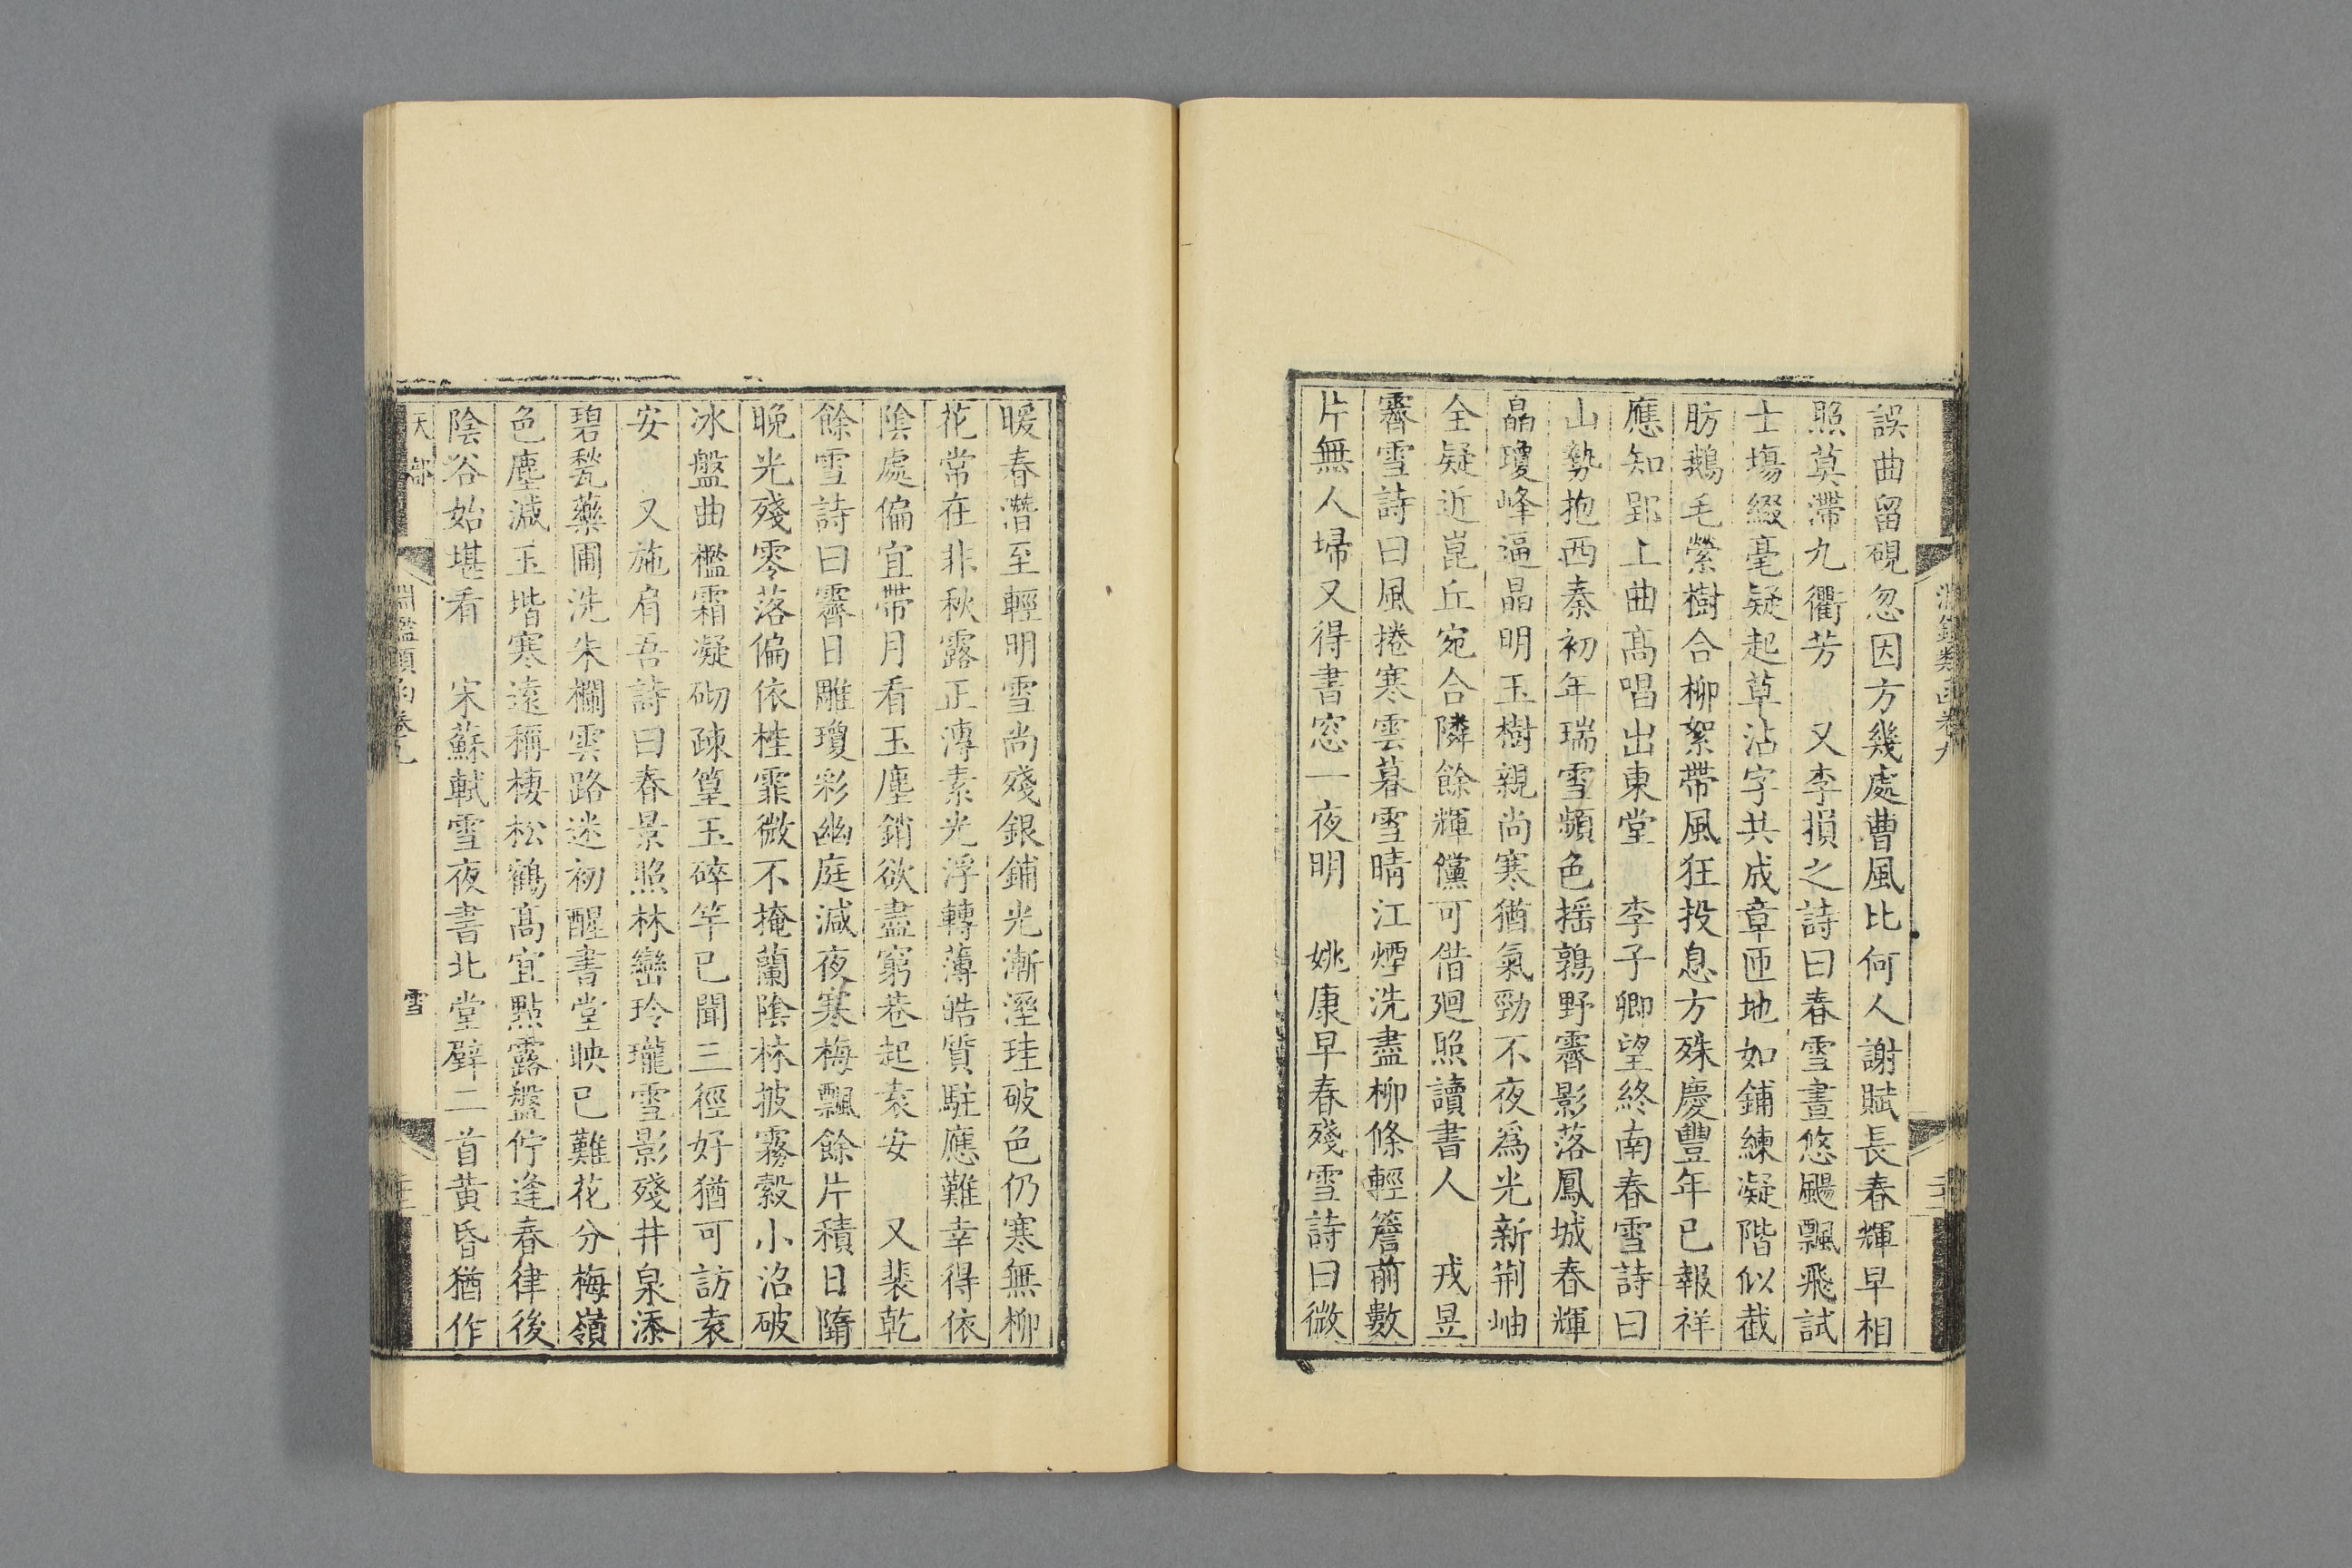 淵鑑類函卷九
誤曲留硯忽因方幾處曹風比何人謝賦長春輝早相
照莫滯九衢芳　又李損之詩曰春雪晝悠颺飄飛試
士塲綴毫疑起草沾字共成章匝地如鋪練凝階似截
肪鵝毛縈樹合柳絮帶風狂投息方殊慶豐年已報祥
應知郢上曲高唱出東堂　李子卿望終南春雪詩曰
山勢抱西秦初年瑞雪頻色揺鶉野霽影落鳳城春輝
皛瓊峰逼晶明玉樹親尚寒猶氣勁不夜爲光新荆岫
全疑近崑丘宛合隣餘輝儻可借廻照讀書人　戎昱
霽雪詩曰風捲寒雲暮雪晴江煙洗盡柳條輕簷前數
片無人埽又得書窓一夜明　姚康早春殘雪詩曰微
暖春潛至輕明雪尚殘銀鋪光漸溼珪破色仍寒無柳
花常在非秋露正漙素光浮轉薄皓質駐應難幸得依
陰處偏宜帶月看玉塵銷欲盡窮巷起袁安　又裴乾
餘雪詩曰霽日雕瓊彩幽庭減夜寒梅飄餘片積日隋
晚光殘零落偏依桂霏微不掩蘭陰林披霧縠小沼破
冰盤曲檻霜凝砌疎篁玉碎竿已聞三徑好猶可訪袁
安　又施肩吾詩曰春景照林巒玲瓏雪影殘井泉添
碧甃藥圃洗朱欄雲路迷初醒書堂映已難花分梅嶺
色塵減玉堦寒遠稱棲松鶴高宜點露盤佇逢春律後
陰谷始堪看　宋蘇軾雪夜書北堂壁二首黃昏猶作
天部　淵鑑類函卷九　雪